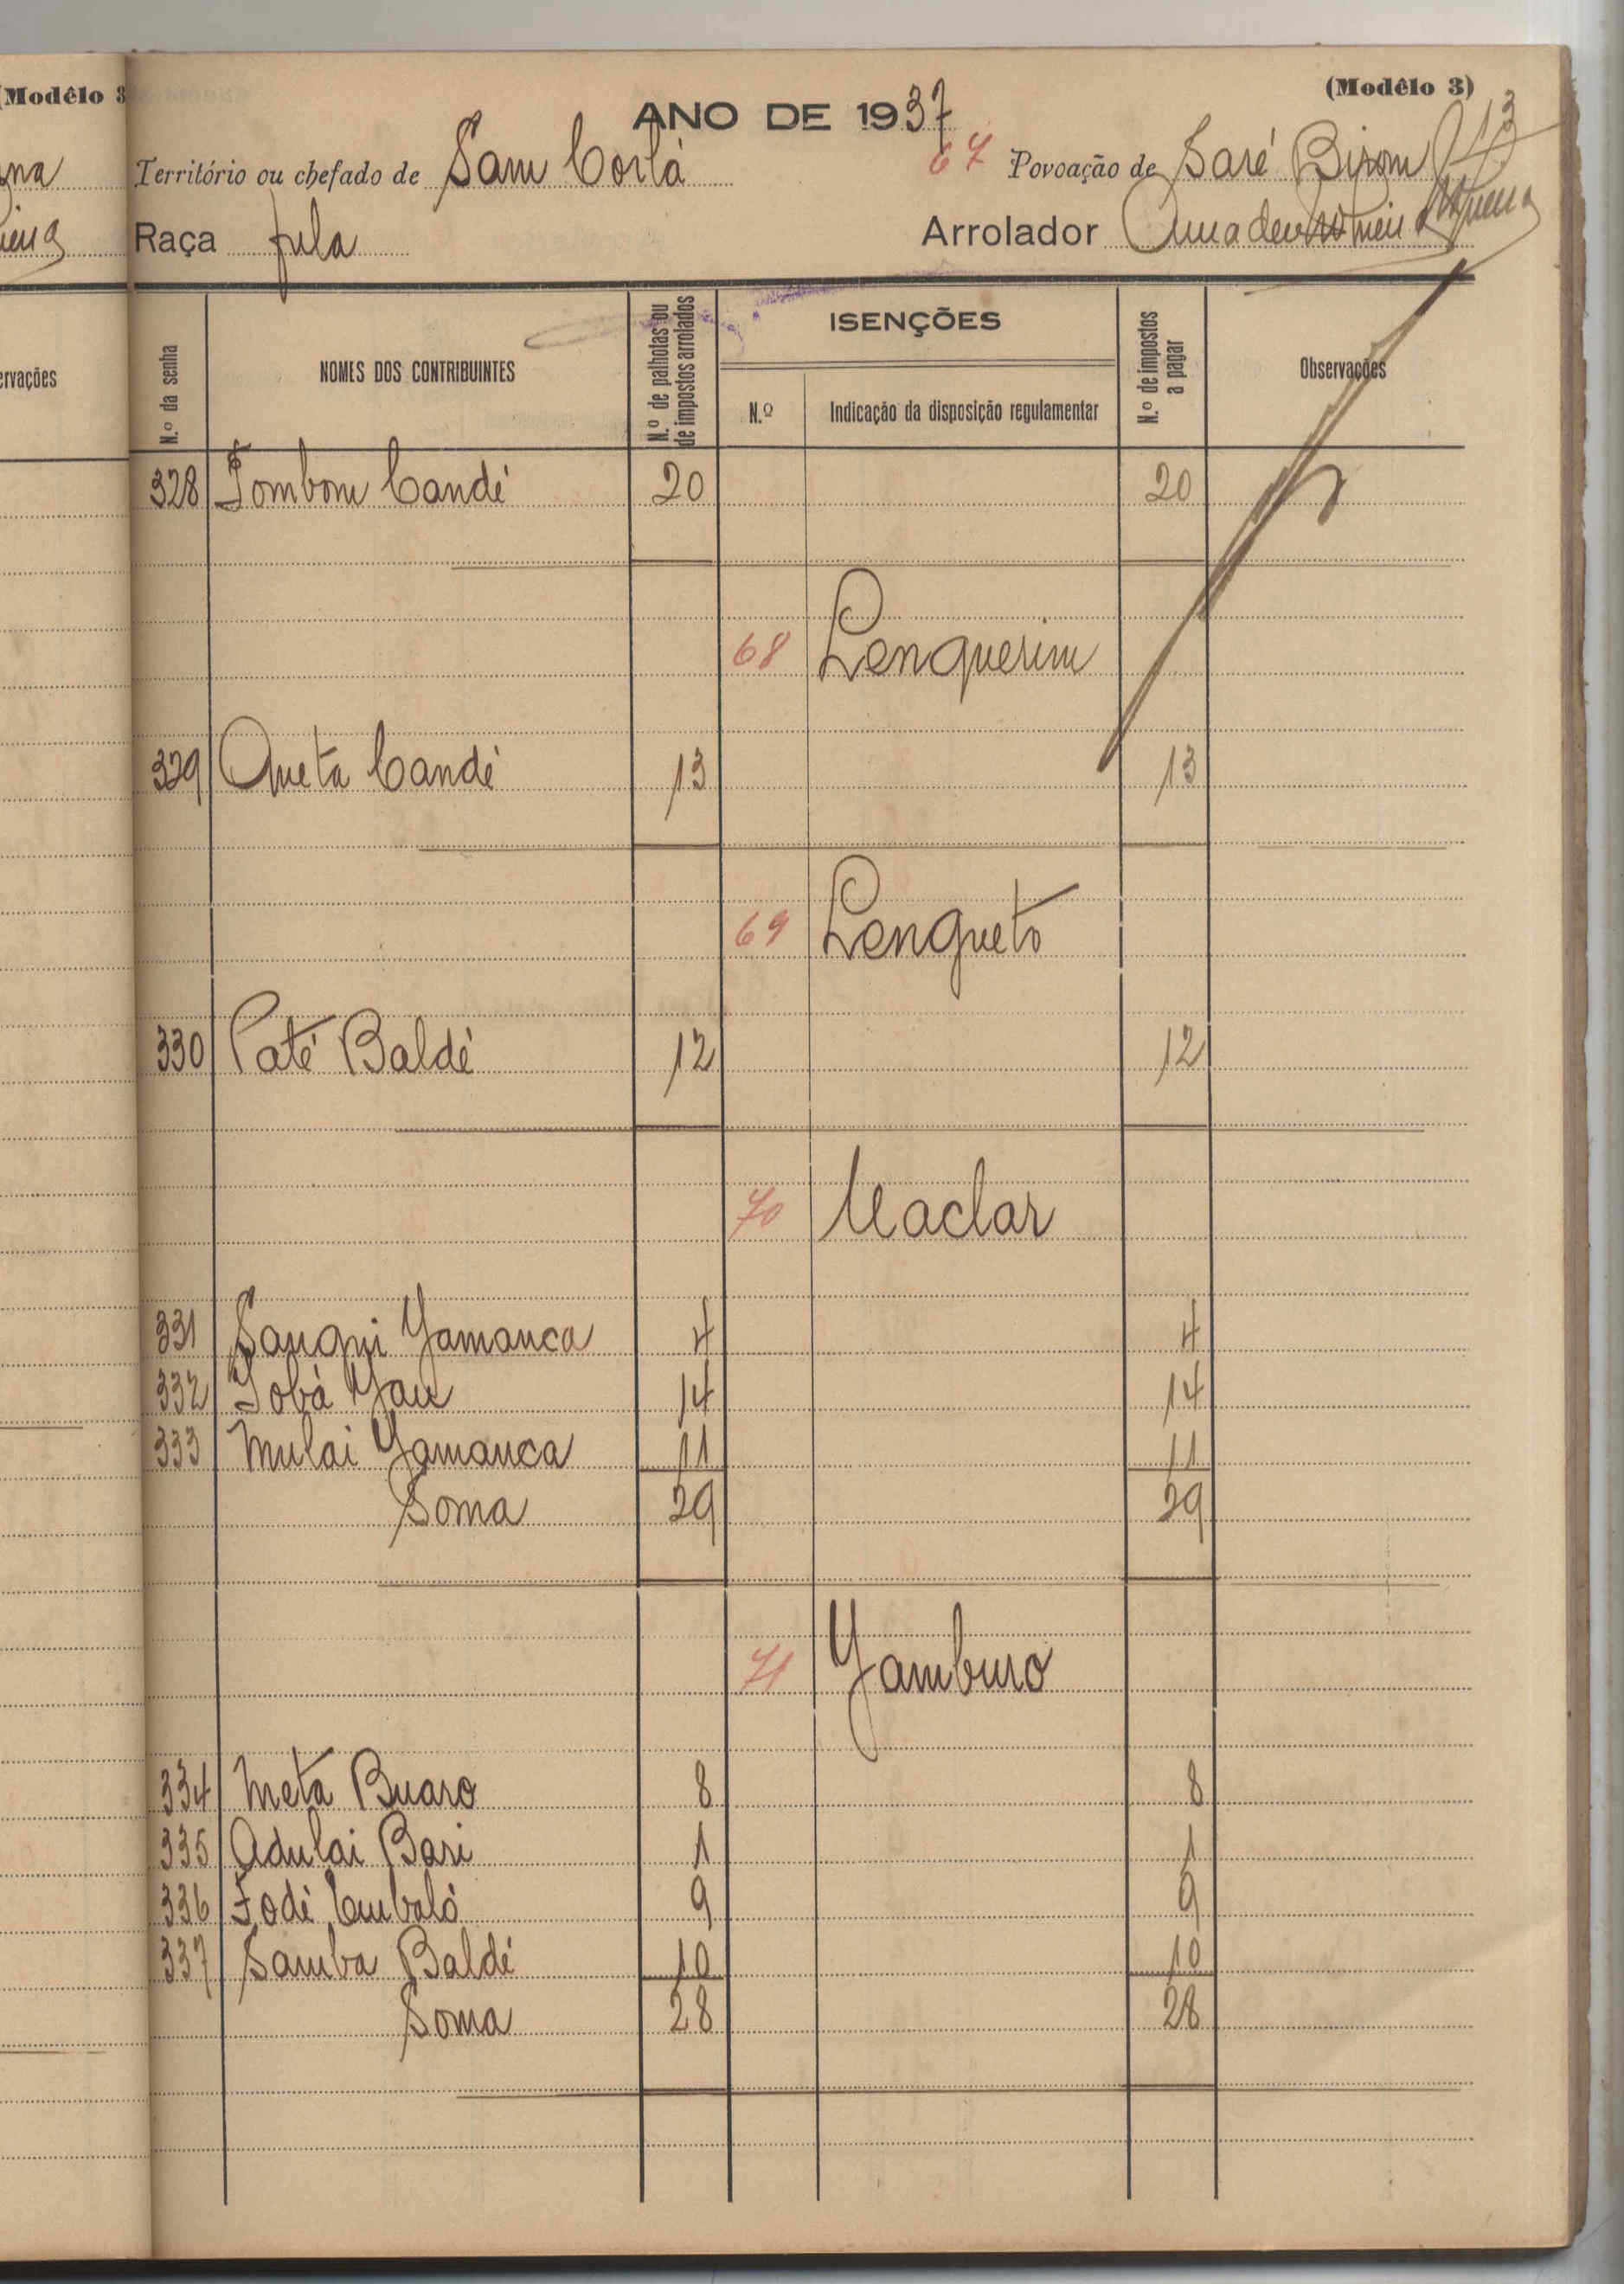 (Modêlo 3
(Modêlo 3)
ANO DE 1937
Território ou chefado de Sam Corlá
67 Povoação de Saré Birom
13
Raça fula
Arrolador Amadeu
ervações
N.º da senha
NOMES DOS CONTRIBUINTES
N.º de palhotas ou de impostos arrolados
ISENÇÕES
N.º
Indicação da disposição regulamentar
N.º de impostos a pagar
Observações
328 Tombom Candé 20 20
68 Lenquerim
329 Queta Candé 13 13
69 Lenqueto
330 Paté Baldé 12 12
70 Uaclar
331 Sanqui Jamanca 4 4
332 Jobá Jau 14 14
333 Mulai Jamanca 11 11
Soma 29 29
71 Jamburo
334 Meta Buaro 8 8
335 Adulai Bari 1 1
336 Fodé Embaló 9 9
337 Samba Baldé 10 10
Soma 28 28